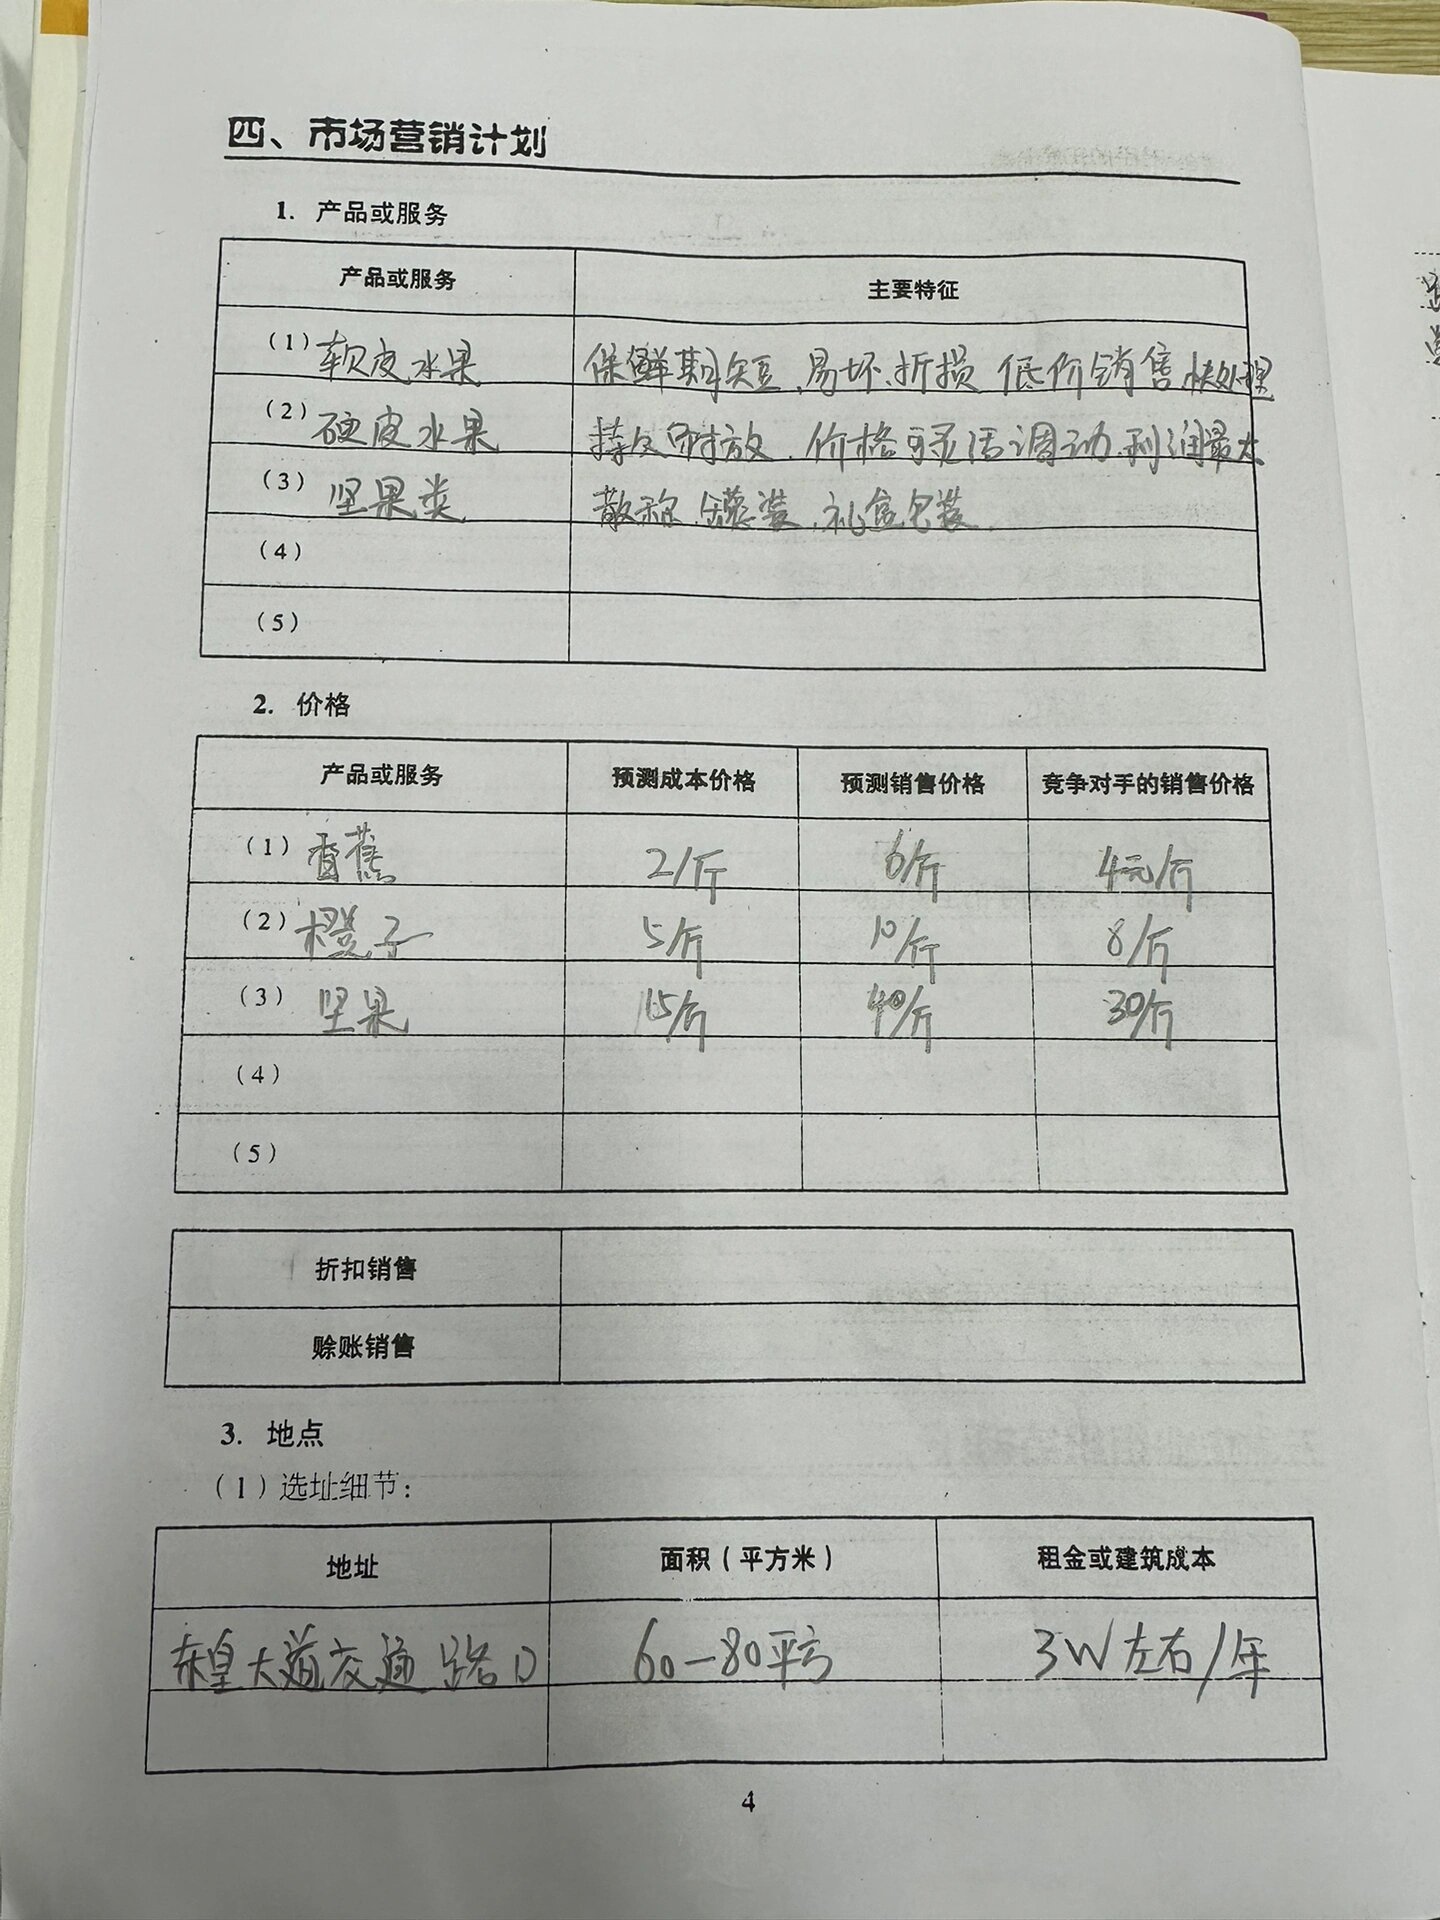 四、市场营销计划
1. 产品或服务
产品或服务 主要特征
(1) 软皮水果 保鲜期短、易坏、折损 低价销售 快处理
(2) 硬皮水果 持久耐放、价格可灵活调动、利润最大
(3) 坚果类 散称、罐装、礼盒包装
(4)
(5)
2. 价格
产品或服务 预测成本价格 预测销售价格 竞争对手的销售价格
(1) 香蕉 2/斤 6/斤 4元/斤
(2) 橙子 5/斤 10/斤 8/斤
(3) 坚果 15/斤 40/斤 30/斤
(4)
(5)
折扣销售
赊账销售
3. 地点
(1)选址细节：
地址 面积(平方米) 租金或建筑成本
东皇大道交通路口 60—80平方 3W左右/年
4